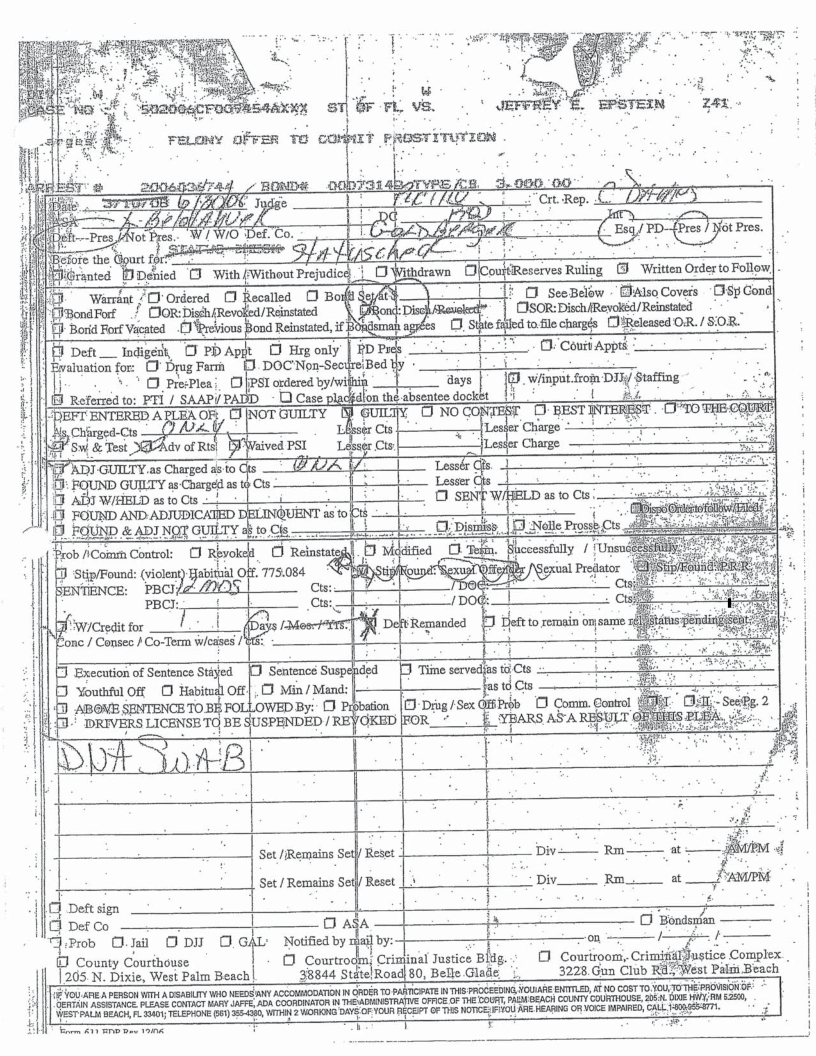 CASE NO - 502006CF009454AXXX ST OF FL VS. JEFFREY E. EPSTEIN Z41
FELONY OFFER TO COMMIT PROSTITUTION
ARREST # 2006036744 / BOND# TYPE/CB 3,000.00
Date 6/30/08 Judge Crt. Rep.
ASA L. Belohlavek DC Goldberger Int
Deft---Pres / Not Pres. W / W/O Def. Co. Esq / PD - Pres / Not Pres.
Before the Court for: STATUS CHECK
Granted Denied With / Without Prejudice Withdrawn Court Reserves Ruling Written Order to Follow
Warrant Ordered Recalled Bond Set at $ See Below Also Covers Sp Cond
Bond Forf OR: Disch/Revoked/Reinstated Bond: Disch/Revoked SOR: Disch/Revoked/Reinstated
Bond Forf Vacated Previous Bond Reinstated, if Bondsman agrees State failed to file charges Released O.R. / S.O.R.
Deft Indigent PD Appt Hrg only PD Pres Court Appts
Evaluation for: Drug Farm DOC Non-Secure Bed by
Pre-Plea PSI ordered by/within days w/input from DJJ / Staffing
Referred to: PTI / SAAP / PADD Case placed on the absentee docket
DEFT ENTERED A PLEA OF: NOT GUILTY GUILTY NO CONTEST BEST INTEREST TO THE COURT
As Charged-Cts ONLY Lesser Cts Lesser Charge
Sw & Test Adv of Rts Waived PSI Lesser Cts Lesser Charge
ADJ GUILTY as Charged as to Cts ONLY Lesser Cts
FOUND GUILTY as Charged as to Cts Lesser Cts
ADJ W/HELD as to Cts SENT W/HELD as to Cts
FOUND AND ADJUDICATED DELINQUENT as to Cts Dispo Order to follow/Filed
FOUND & ADJ NOT GUILTY as to Cts Dismiss Nolle Prosse Cts
Prob / Comm Control: Revoked Reinstated Modified Term. Successfully / Unsuccessfully
Stip/Found: (violent) Habitual Off. 775.084 Stip/Found: Sexual Offender / Sexual Predator Stip/Found: P.R.R.
SENTENCE: PBCJ: 12 MOS Cts: / DOC: Cts:
PBCJ: Cts: / DOC: Cts:
W/Credit for 1 Days / Mos. / Yrs. Deft Remanded Deft to remain on same rel. status pending sent.
Conc / Consec / Co-Term w/cases / cts:
Execution of Sentence Stayed Sentence Suspended Time served as to Cts
Youthful Off Habitual Off Min / Mand: as to Cts
ABOVE SENTENCE TO BE FOLLOWED By: Probation Drug / Sex Off Prob Comm. Control I II - See Pg. 2
DRIVERS LICENSE TO BE SUSPENDED / REVOKED FOR YEARS AS A RESULT OF THIS PLEA.
DNA SWAB
Set / Remains Set / Reset Div Rm at AM/PM
Set / Remains Set / Reset Div Rm at AM/PM
Deft sign
Def Co ASA Bondsman
Prob Jail DJJ GAL Notified by mail by: on / /
County Courthouse Courtroom, Criminal Justice Bldg. Courtroom, Criminal Justice Complex
205 N. Dixie, West Palm Beach 38844 State Road 80, Belle Glade 3228 Gun Club Rd., West Palm Beach
IF YOU ARE A PERSON WITH A DISABILITY WHO NEEDS ANY ACCOMMODATION IN ORDER TO PARTICIPATE IN THIS PROCEEDING, YOU ARE ENTITLED, AT NO COST TO YOU, TO THE PROVISION OF
CERTAIN ASSISTANCE. PLEASE CONTACT MARY JAFFE, ADA COORDINATOR IN THE ADMINISTRATIVE OFFICE OF THE COURT, PALM BEACH COUNTY COURTHOUSE, 205 N. DIXIE HWY, RM 5.2500,
WEST PALM BEACH, FL 33401; TELEPHONE (561) 355-4380, WITHIN 2 WORKING DAYS OF YOUR RECEIPT OF THIS NOTICE; IF YOU ARE HEARING OR VOICE IMPAIRED, CALL 1-800-955-8771.
Form 611 EDP Rev 12/06